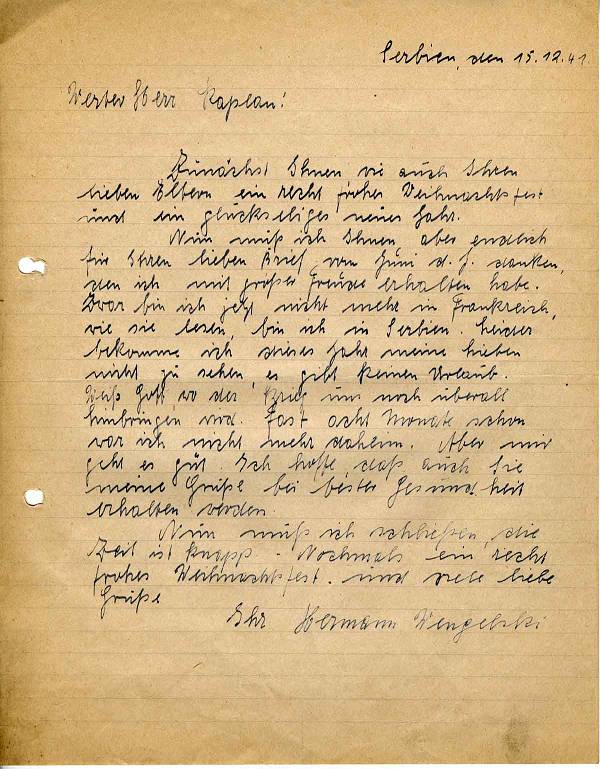 Serbien, den 15.12.41.
Werter Herr Kaplan!
Zunächst Ihnen wie auch Ihren
lieben Eltern ein recht frohes Weihnachtsfest
und ein glückseliges neues Jahr.
Nun muß ich Ihnen aber endlich
für Ihren lieben Brief vom Juni d. J. danken,
den ich mit großer Freude erhalten habe.
Zwar bin ich jetzt nicht mehr in Frankreich,
wie sie lesen, bin ich in Serbien. Leider
bekomme ich dieses Jahr meine Lieben
nicht zu sehen, es gibt keinen Urlaub.
Weiß Gott, wo der Krieg uns noch überall
hinbringen wird. Fast acht Monate schon
war ich nicht mehr daheim. Aber mir
geht es gut. Ich hoffe, daß auch Sie
meine Grüße bei bester Gesundheit
erhalten werden.
Nun muß ich schließen, die
Zeit ist knapp. Nochmals ein recht
frohes Weihnachtsfest. und viele liebe
Grüße
Ihr Hermann Wengelski